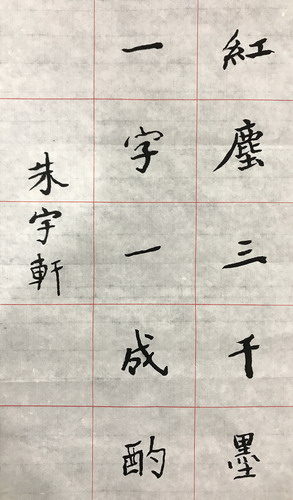 紅塵三千墨
一字一成酌
朱宇軒